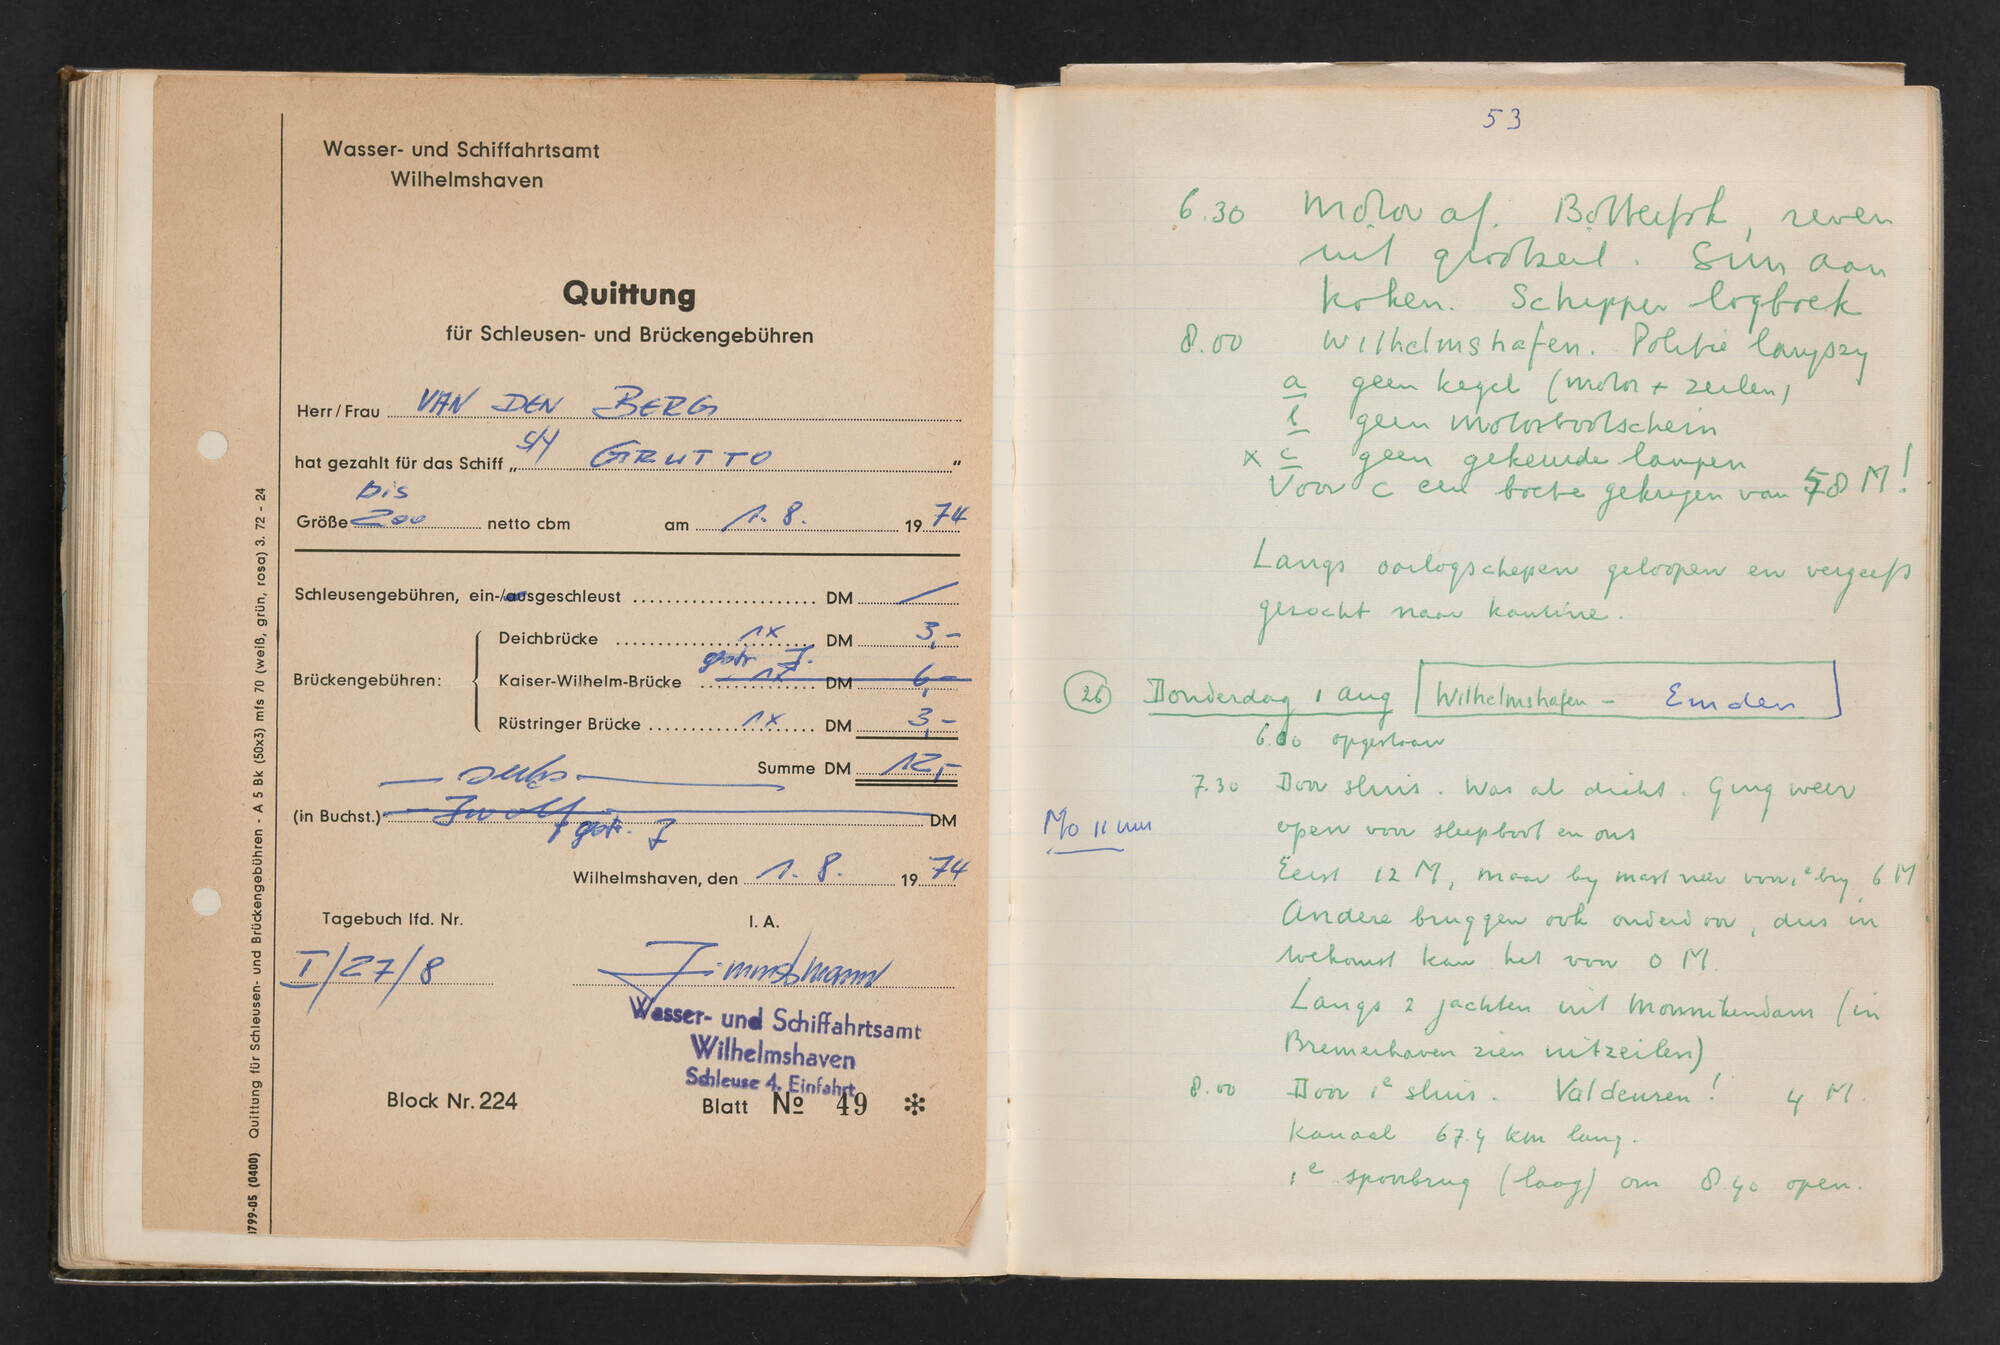 Wasser- und Schiffahrtsamt
Wilhelmshaven
Quittung
für Schleusen- und Brückengebühren
Herr/Frau VAN DEN BERG
hat gezahlt für das Schiff „ S/Y GRUTTO "
bis
Größe 200 netto cbm am 1. 8. 1974
Schleusengebühren, ein-/ausgeschleust DM /
Deichbrücke 1x DM 3,-
gestr. Z.
Brückengebühren: Kaiser-Wilhelm-Brücke 1x DM 6,-
Rüstringer Brücke 1x DM 3,-
Summe DM 12,-
— sechs —
(in Buchst.) — Zwölf — DM
gestr. Z
Wilhelmshaven, den 1. 8. 1974
Tagebuch lfd. Nr. I. A.
I/27/8 Zimmermann
Wasser- und Schiffahrtsamt
Wilhelmshaven
Schleuse 4. Einfahrt
Block Nr. 224 Blatt № 49 *
1799-05 (0400) Quittung für Schleusen- und Brückengebühren - A 5 Bk (50x3) mfs 70 (weiß, grün, rosa) 3. 72 - 24
53
6.30 Motor af. Botterfok, reven
uit grootzeil. Sim aan
koken. Schipper logboek
8.00 Wilhelmshafen. Politie langszy
a geen kegel (motor + zeilen)
b geen motorbootschein
x c geen gekeurde lampen
Voor c een boete gekregen van 58 M!
Langs oorlogschepen geloopen en vergeefs
gezocht naar kantine.
26 Donderdag 1 aug Wilhelmshafen - Emden
6.00 opgestaan
7.30 Door sluis. Was al dicht. Ging weer
M/o 11 uur
open voor sleepboot en ons
Eerst 12 M, maar by mast neer voor 1e brug 6 M
Andere bruggen ook onderdoor, dus in
toekomst kan het voor 0 M.
Langs 2 jachten uit Monnikendam (in
Bremerhaven zien uitzeilen)
8.00 Door 1e sluis. Valdeuren! 4 M.
Kanaal 67.4 km lang.
1e spoorbrug (laag) om 8.40 open.